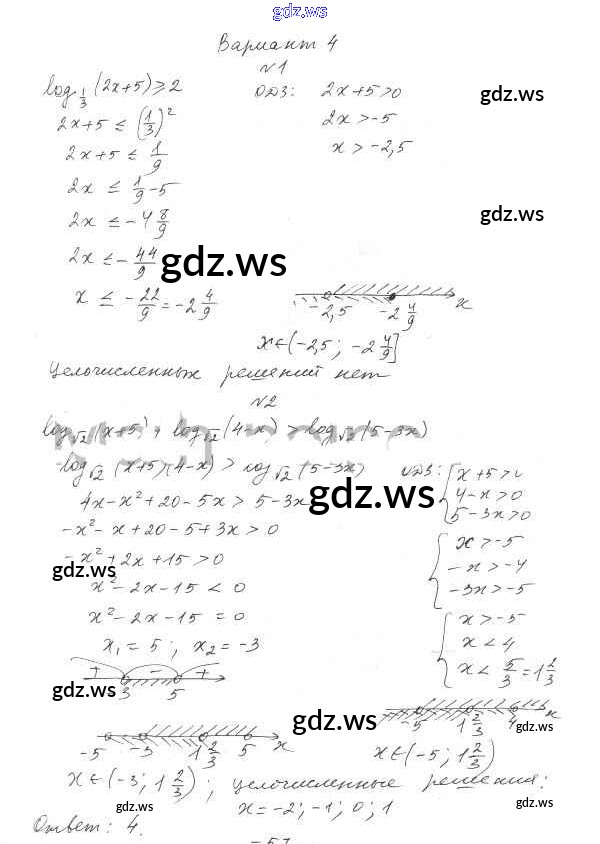 gdz.ws
Вариант 4
№1
log_{1/3}(2x+5) ≥ 2
ОДЗ: 2x+5>0
gdz.ws
2x+5 ≤ (1/3)^2
2x > -5
2x+5 ≤ 1/9
x > -2,5
2x ≤ 1/9 - 5
2x ≤ -4 8/9
gdz.ws
2x ≤ -44/9
gdz.ws
x ≤ -22/9 = -2 4/9
-2,5 -2 4/9 x
x∈(-2,5; -2 4/9]
Целочисленных решений нет
№2
log_{√2}(x+5) + log_{√2}(4-x) > log_{√2}(5-3x)
log_{√2}(x+5)(4-x) > log_{√2}(5-3x)
ОДЗ: { x+5>0
4-x>0
5-3x>0
4x-x^2+20-5x > 5-3x
gdz.ws
-x^2-x+20-5+3x > 0
{ x>-5
-x>-4
-3x>-5
-x^2+2x+15 > 0
gdz.ws
x^2-2x-15 < 0
x^2-2x-15 = 0
{ x>-5
x<4
x< 5/3 = 1 2/3
x_1 = 5; x_2 = -3
+ - +
3 5
gdz.ws
gdz.ws
-5 1 2/3 4 x
gdz.ws
-5 -3 1 2/3 5 x
x∈(-5; 1 2/3)
x∈(-3; 1 2/3); целочисленные решения:
x=-2; -1; 0; 1
gdz.ws
gdz.ws
Ответ: 4.